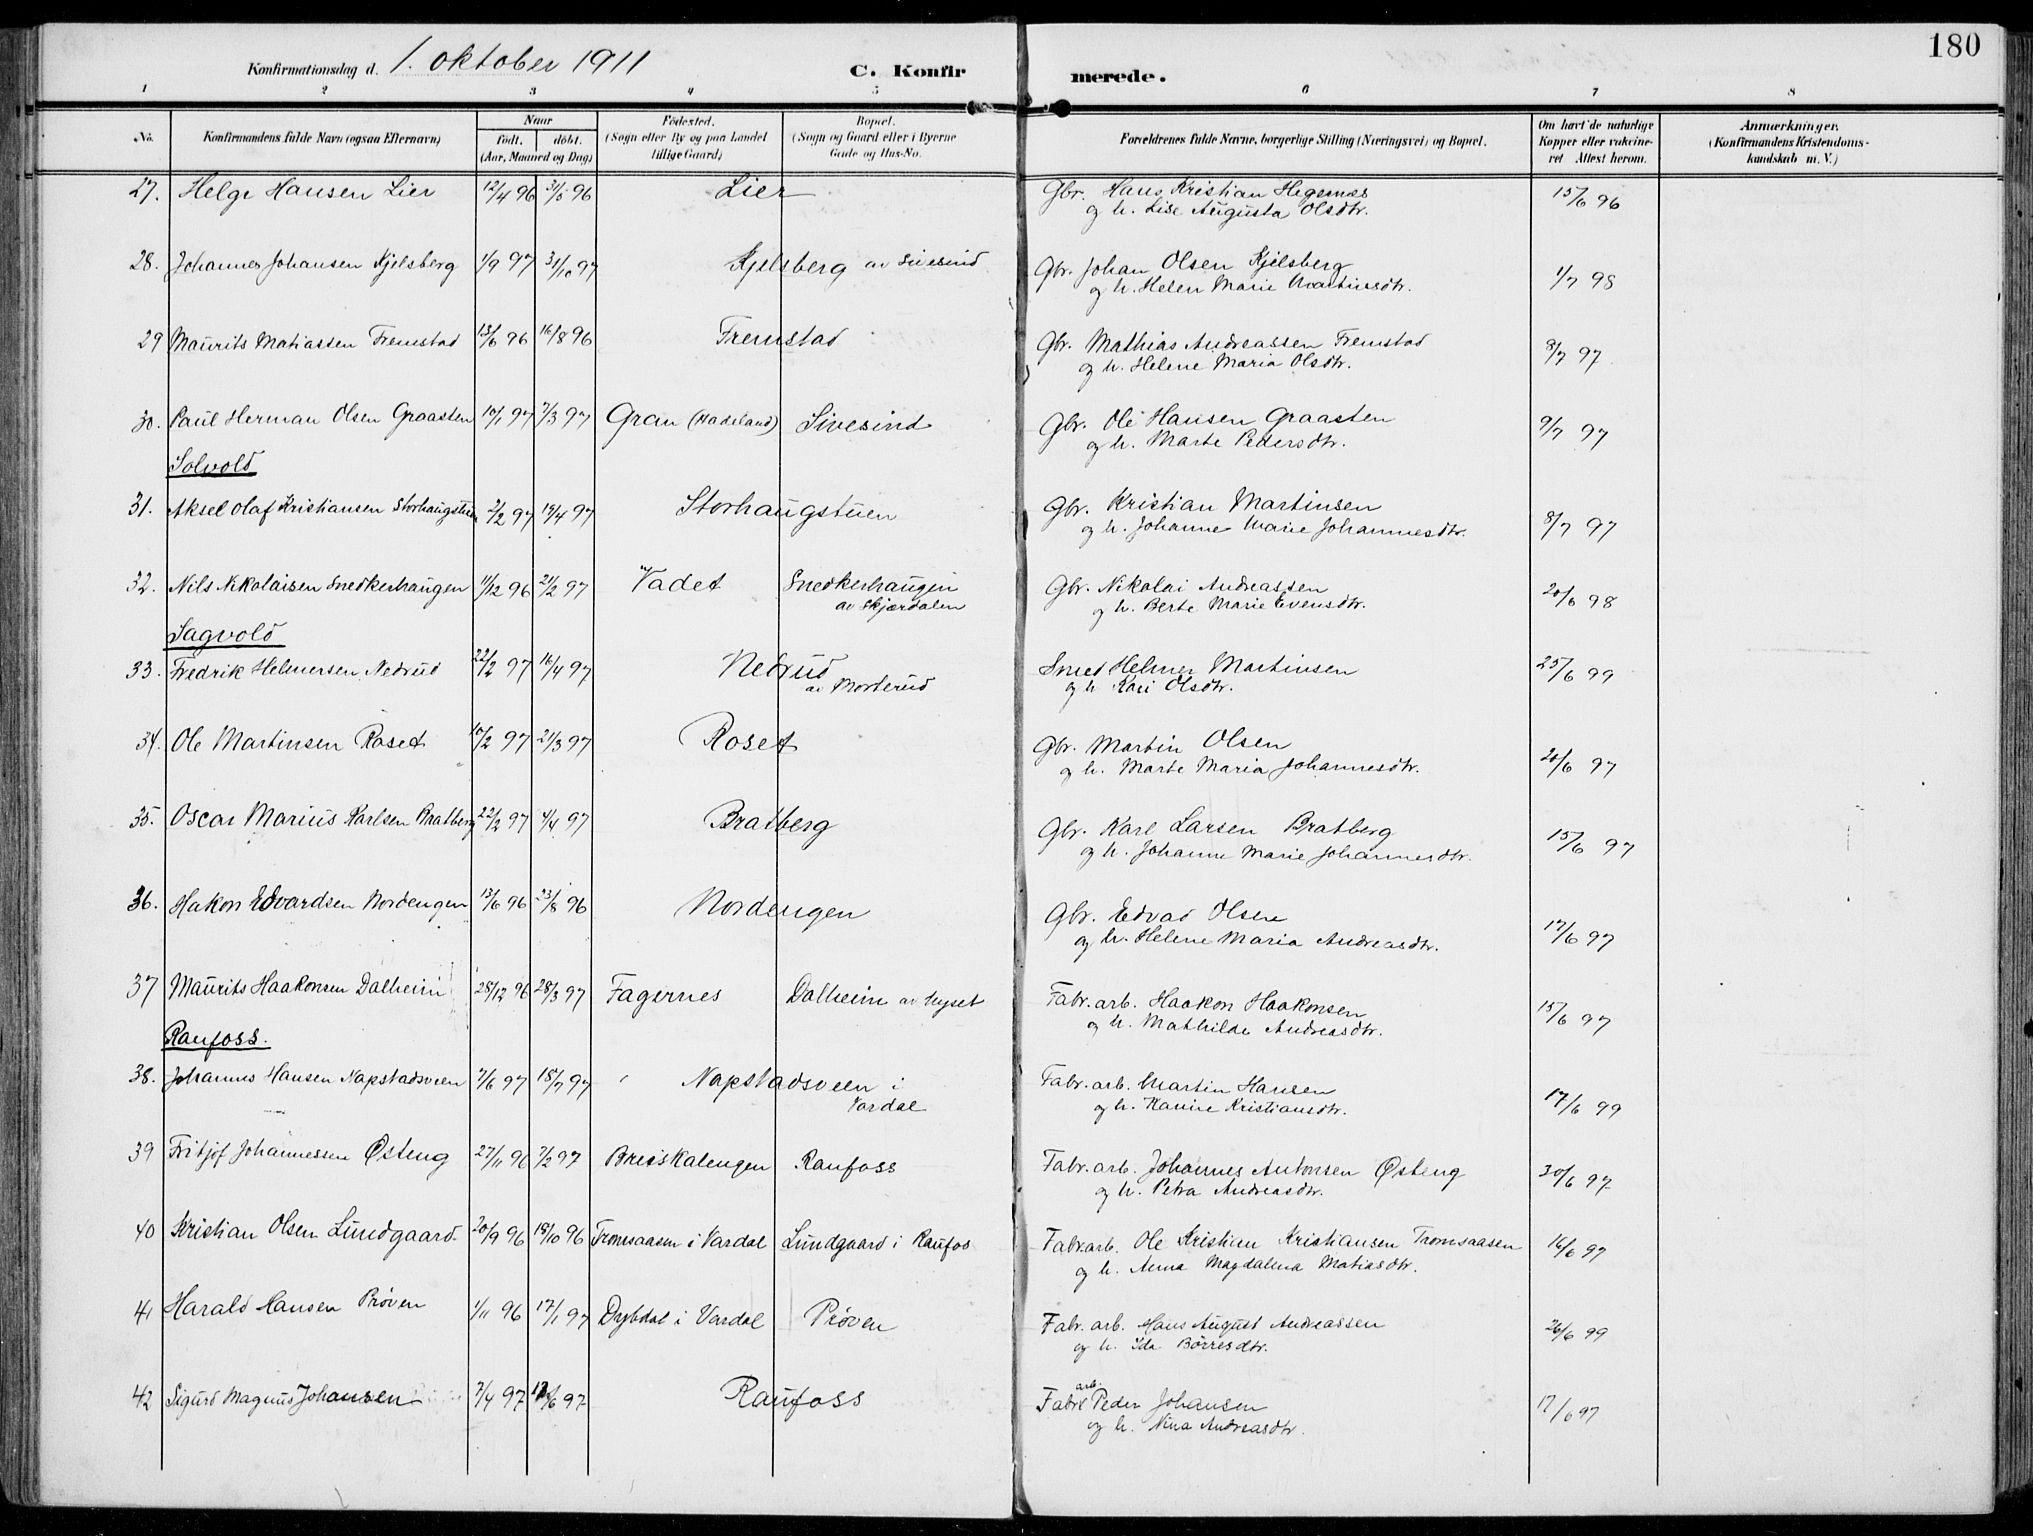 180
Konfirmationsdag d. 1. oktober 1911
C. Konfirmerede.
1 2 3 4 5 6 7 8
No. Konfirmandens fulde Navn (ogsaa Efternavn) Naar født. døbt. (Aar, Maaned og Dag) Fødested. (Sogn eller By og paa Landet tillige Gaard) Bopæl. (Sogn og Gaard eller i Byerne Gade og Hus-No. Forældrenes fulde Navne, borgerlige Stilling (Næringsvei) og Bopæl. Om havt de naturlige Kopper eller vaccineret Attest herom. Anmærkninger. (Konfirmandens Kristendomskundskab m. V.)
27. Helge Hansen Lier 12/4 96 31/5 96 Lier Gbr. Hans Kristian Hegernæs 15/6 96
og h. Lise Augusta Olsdtr.
28. Johannes Johansen Kjelsberg 1/9 97 31/10 97 Kjelsberg av Sivesind Gbr. Johan Olsen Kjelsberg 1/7 98
og h. Helen Marie Martinsdtr.
29 Maurits Matiassen Fremstad 13/6 96 16/8 96 Fremstad Gbr. Mathias Andreassen Fremstad 8/7 97
og h. Helene Maria Olsdtr.
30. Paul Herman Olsen Graasten 10/1 97 7/3 97 Gran (Hadeland) Sivesind Gbr. Ole Hansen Graasten 9/7 97
og h. Marte Pedersdtr.
Solvold
31. Aksel Olaf Kristiansen Storhaugstuen 2/2 97 19/4 97 Storhaugstuen Gbr. Kristian Martinsen 8/7 97
og h. Johanne Marie Johannesdtr.
32. Nils Nikolaisen Snedkerhaugen 11/12 96 21/2 97 Vadet Snedkerhaugen Gbr. Nikolai Andreassen 20/6 98
av Skjærdalen og h. Berte Marie Evensdtr.
Sagvold
33. Fredrik Helmersen Nedrud 22/2 97 16/4 97 Nedrud Smed Helmer Martinsen 25/6 99
av Morterud og h Kari Olsdtr.
34. Ole Martinsen Roset 10/2 97 21/3 97 Roset Gbr. Martin Olsen 20/6 97
og h. Marte Maria Johannesdtr.
35. Oscar Marius Karlsen Bratberg 22/2 97 4/4 97 Bratberg Gbr. Karl Larsen Bratberg 15/6 97
og h. Johanne Marie Johannesdtr.
36. Hakon Edvardsen Nordengen 13/6 96 23/8 96 Nordengen Gbr. Edvad Olsen 17/6 97
og h. Helene Maria Andreasdtr.
37 Maurits Haakonsen Dalheim 28/12 96 28/3 97 Fagernes Dalheim av Nyset Fabr. arb. Haakon Haakonsen 15/6 97
og h. Mathilde Andreasdtr.
Raufoss.
38. Johannes Hansen Napstadsveen 7/6 97 18/7 97 Napstadsveen i Fabr. arb. Martin Hansen 17/6 99
Vardal og h. Karine Kristiansdtr.
39 Fritjof Johannessen Østeng 27/11 96 7/2 97 Breiskalengen Raufoss Fabr. arb. Johannes Antonsen Østeng 30/6 97
og h. Petra Andreasdtr.
40 Kristian Olsen Lundgaard 20/9 96 18/10 96 Tromsaasen i Vardal Lundgaard i Raufos Fabr. arb. Ole Kristian Kristiansen Tromsaasen 16/6 97
og h. Anna Magdalena Matiasdtr.
41 Harald Hansen Prøven 1/11 96 17/1 97 Dybdal i Vardal Prøven Fabr. arb. Hans August Andreassen 26/6 99
og h. Ida Børresdtr.
42 Sigurd Magnus Johansen 7/4 97 /6 97 Raufoss Fabr. arb. Peder Johansen 17/6 97
og h. Nina Andreasdtr.